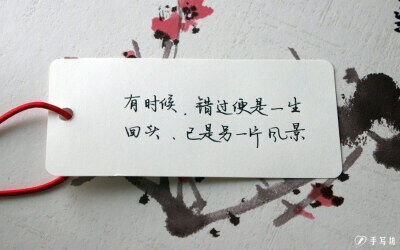 有时候，错过便是一生
回头、已是另一片风景
手写馆